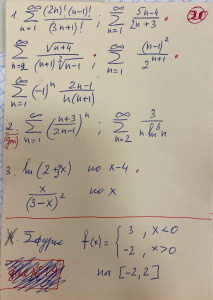 1. \sum_{n=1}^{\infty} \frac{(2n)!(n-1)!}{(3n+1)!} ; \sum_{n=1}^{\infty} \frac{5n-4}{2n+3} . 20
\sum_{n=2}^{\infty} \frac{\sqrt{n+4}}{(n+1)\sqrt[3]{n-1}} ; \sum_{n=1}^{\infty} \frac{(n-1)^2}{2^{n+1}}
\sum_{n=1}^{\infty} (-1)^n \frac{2n-1}{n(n+1)}
2. \sum_{n=1}^{\infty} \left(\frac{n+3}{2n-1}\right)^n ; \sum_{n=2}^{\infty} \frac{3}{n \ln^3 n}
3. ln(2+9x) по x-4.
\frac{x}{(3-x)^2} по x
Фурье f(x) = \begin{cases} 3, x<0 \\ -2, x>0 \end{cases}
на [-2,2]